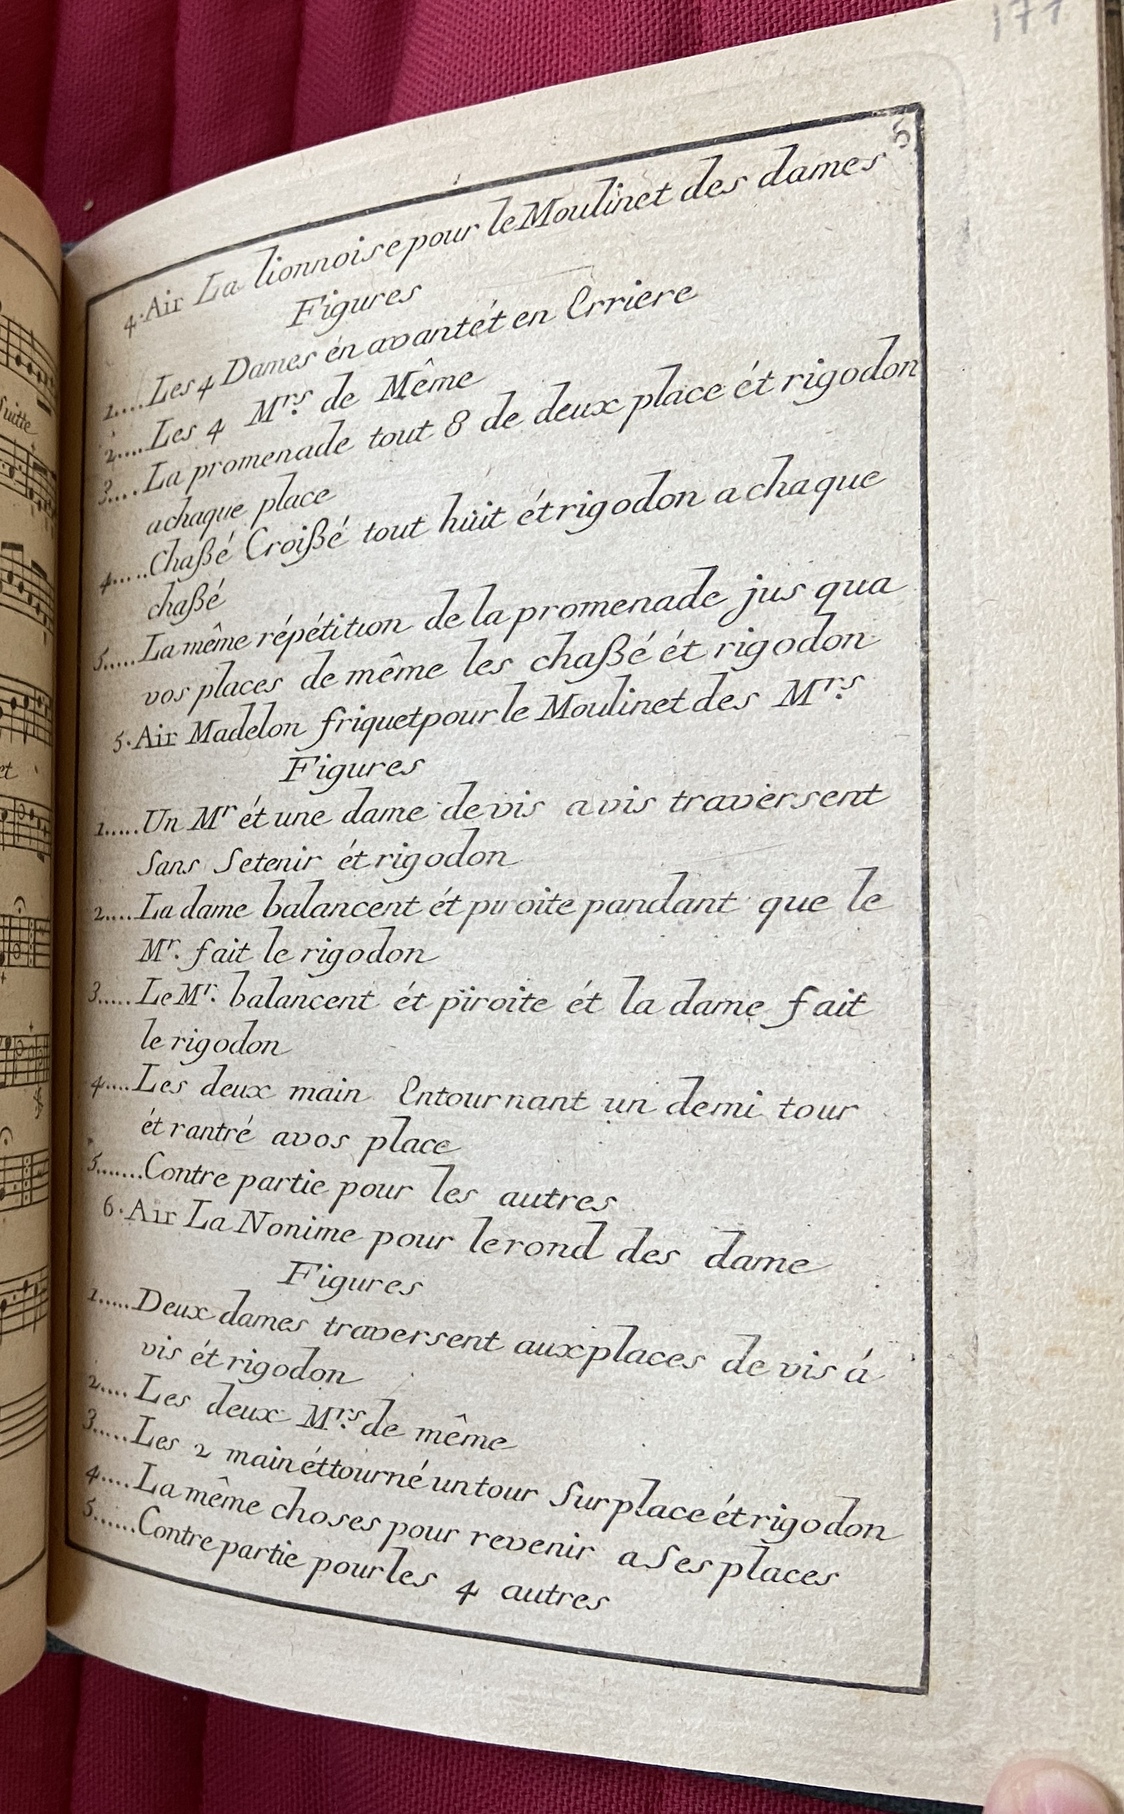 177
5
4. Air La lionnoise pour le Moulinet des dames
Figures
1.... Les 4 Dames én avant ét en Erriere
2.... Les 4 Mrs. de Même
3.... La promenade tout 8 de deux place ét rigodon
achaque place
4..... Chaßé Croißé tout huit ét rigodon a chaque
chaßé
5..... La même répétition de la promenade jus qua
vos places de même les chaßé ét rigodon
5. Air Madelon friquet pour le Moulinet des Mrs.
Figures
1..... Un Mr ét une dame de vis a vis traversent
Sans Setenir ét rigodon
2.... La dame balancent ét piroite pandant que le
Mr. fait le rigodon
3..... Le Mr. balancent ét piroite ét la dame fait
le rigodon
4.... Les deux main Entournant un demi tour
ét rantré avos place
5....... Contre partie pour les autres
6. Air La Nonime pour le rond des dame
Figures
1..... Deux dames traversent aux places de vis á
vis ét rigodon
2.... Les deux Mrs. de même
3..... Les 2 main ét tourné un tour Sur place ét rigodon
4.... La même choses pour revenir a Ses places
5...... Contre partie pour les 4 autres
Suitte